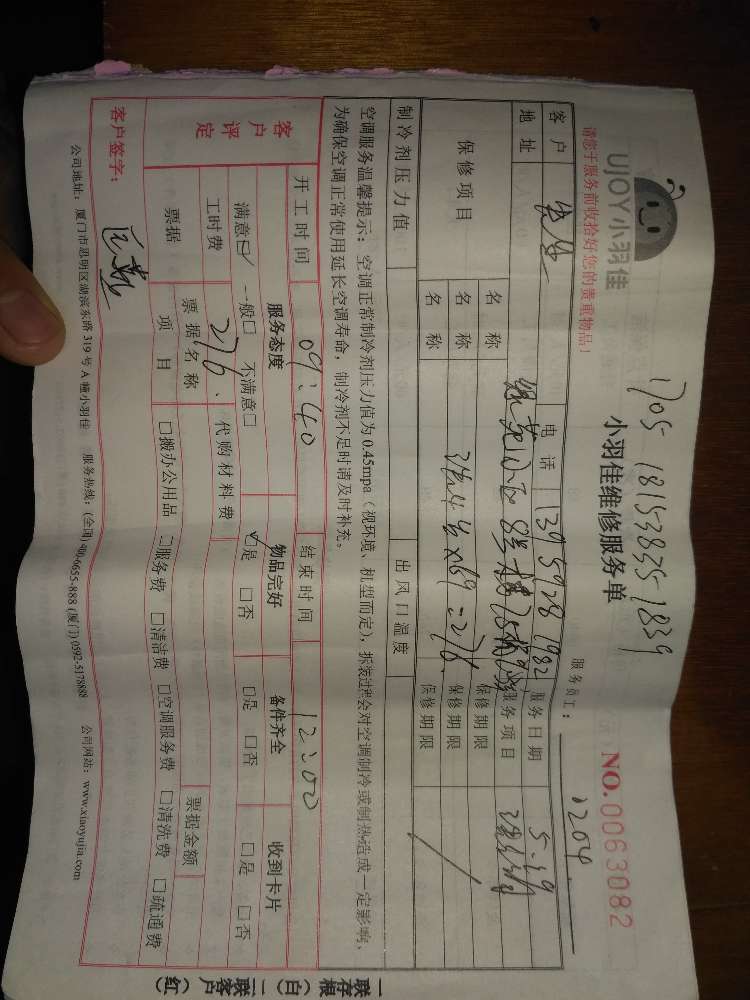 1705-18153835-1839
UJOY小羽佳
小羽佳维修服务单
NO.0063082
请您于服务前收拾好您的贵重物品!
服务员工: 0204
客户 电话 13959281982 服务日期 5.29
地址 8号楼 服务项目
保修项目 名称 保修期限
名称 ×69=276. 保修期限
名称 保修期限
制冷剂压力值 出风口温度
空调服务温馨提示:空调正常制冷剂压力值为0.45mpa(视环境、机型而定),拆装过程会对空调制冷或制热造成一定影响,
为确保空调正常使用延长空调寿命,制冷剂不足时请及时补充。
客户评定
开工时间 09:40 结束时间 12:00
服务态度 物品完好 备件齐全 收到卡片
满意☑ 一般□ 不满意□ ☑是 □否 □是 □否 □是 □否
工时费 276. 代购材料费
票据 票据名称 票据金额
项目 □搬办公用品 □服务费 □清洁费 □空调服务费 □清洗费 □疏通费
客户签字:
公司地址:厦门市思明区湖滨东路319号A幢小羽佳 服务热线:(全国)400-6655-888 (厦门)0592-5178888 公司网站:www.xiaoyujia.com
一联存根(白) 二联客户(红)